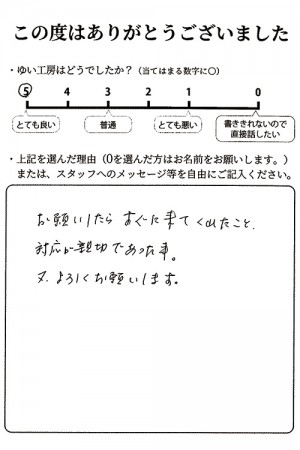 この度はありがとうございました
・ゆい工房はどうでしたか？（当てはまる数字に〇）
5 4 3 2 1 0
とても良い 普通 とても悪い 書ききれないので
直接話したい
・上記を選んだ理由（0を選んだ方はお名前をお願いします。）
または、スタッフへのメッセージ等を自由にご記入ください。
お願いしたら すぐに来てくれたこと、
対応が親切であった事。
又、よろしくお願いします。